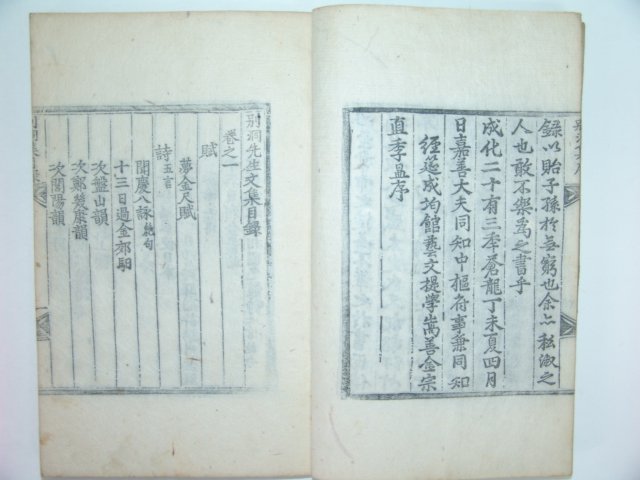 錄以貽子孫於無窮也余亦私淑之
人也敢不樂爲之書乎
成化二十有三年蒼龍丁未夏四月
日嘉善大夫同知中樞府事兼同知
經筵成均館藝文提學嵩善金宗
直季昷序
別洞先生文集目錄
卷之一
賦
夢金尺賦
詩 五言
聞慶八詠 絶句
十三日過金郊馹
次盤山韻
次鄭 康韻
次閭陽韻